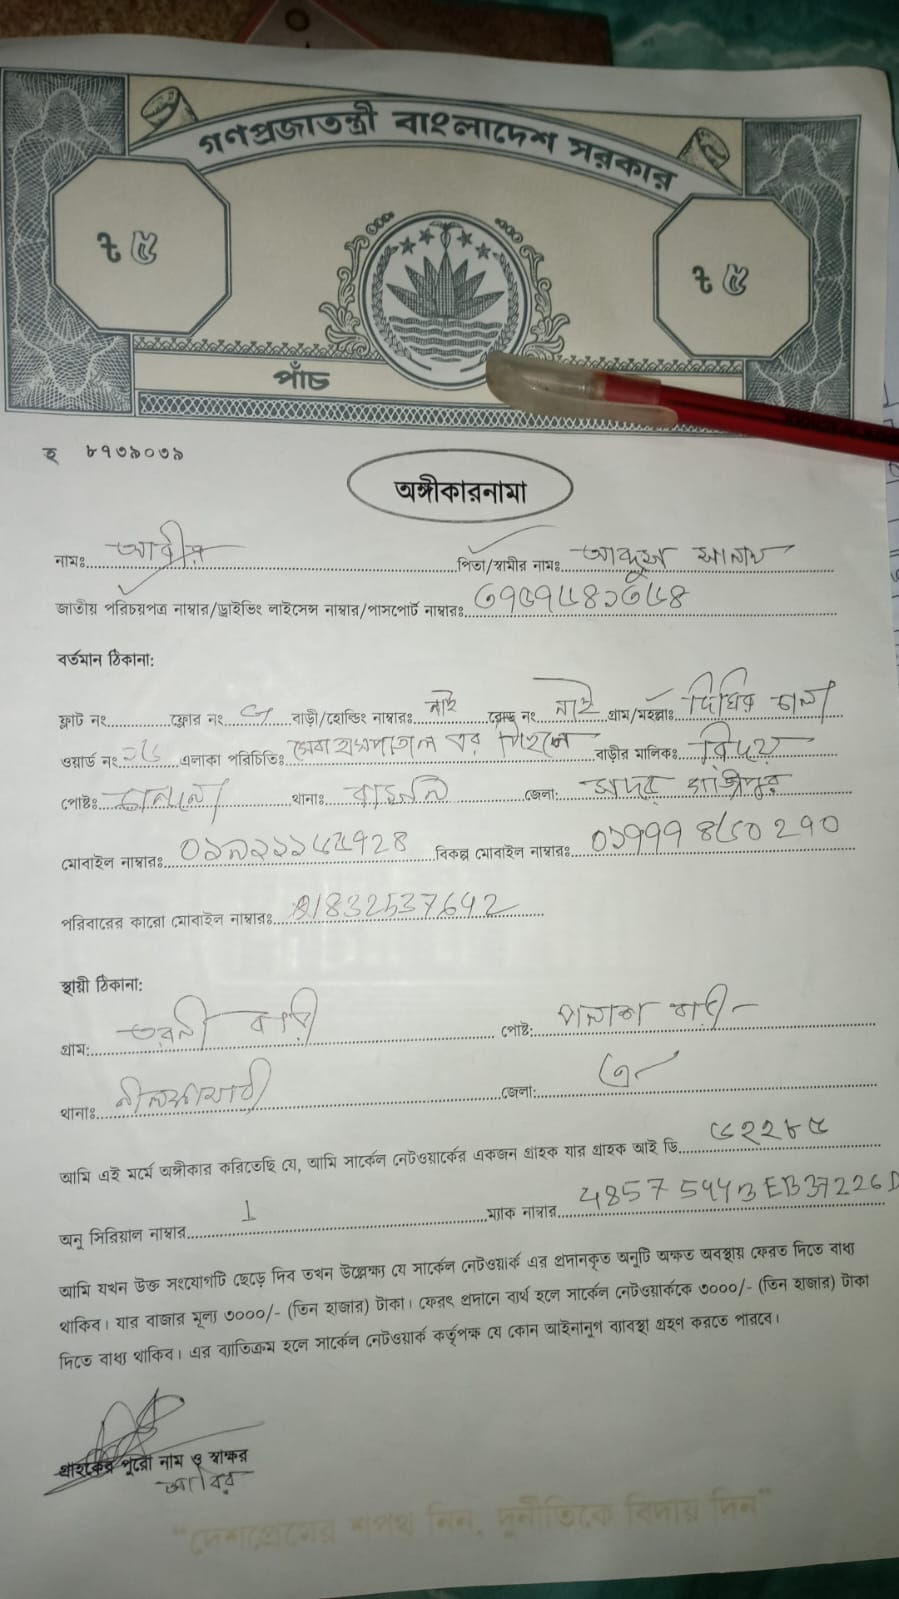 গণপ্রজাতন্ত্রী বাংলাদেশ সরকার
ট ৫ ট ৫
পাঁচ
৮৭৩৯০৩৯
অঙ্গীকারনামা
নামঃ আবীর পিতা/স্বামীর নামঃ আব্দুস সালাম
জাতীয় পরিচয়পত্র নাম্বার/ড্রাইভিং লাইসেন্স নাম্বার/পাসপোর্ট নাম্বারঃ
বর্তমান ঠিকানা:
ফ্লাট নং ফ্লোর নং বাড়ী/হোল্ডিং নাম্বারঃ নাই রোড নং নাই গ্রাম/মহল্লাঃ দিঘির চালা
ওয়ার্ড নং এলাকা পরিচিতিঃ সেবা হাসপাতাল এর পিছনে বাড়ীর মালিকঃ রিদয়
পোষ্টঃ থানাঃ জেলা: সদর গাজীপুর
মোবাইল নাম্বারঃ বিকল্প মোবাইল নাম্বারঃ
পরিবারের কারো মোবাইল নাম্বারঃ 01832537642
স্থায়ী ঠিকানা:
গ্রাম: তরনী বাড়ী পোষ্ট: পলাশ বাড়ী
থানাঃ নীলফামারী জেলা: ঐ
আমি এই মর্মে অঙ্গীকার করিতেছি যে, আমি সার্কেল নেটওয়ার্কের একজন গ্রাহক যার গ্রাহক আই ডি
অনু সিরিয়াল নাম্বার 1 ম্যাক নাম্বার
আমি যখন উক্ত সংযোগটি ছেড়ে দিব তখন উল্লেক্ষ্য যে সার্কেল নেটওয়ার্ক এর প্রদানকৃত অনুটি অক্ষত অবস্থায় ফেরত দিতে বাধ্য
থাকিব। যার বাজার মূল্য ৩০০০/- (তিন হাজার) টাকা। ফেরৎ প্রদানে ব্যর্থ হলে সার্কেল নেটওয়ার্ককে ৩০০০/- (তিন হাজার) টাকা
দিতে বাধ্য থাকিব। এর ব্যাতিক্রম হলে সার্কেল নেটওয়ার্ক কর্তৃপক্ষ যে কোন আইনানুগ ব্যাবস্থা গ্রহণ করতে পারবে।
গ্রাহকের পুরো নাম ও স্বাক্ষর
আবির
"দেশপ্রেমের শপথ নিন, দুর্নীতিকে বিদায় দিন"